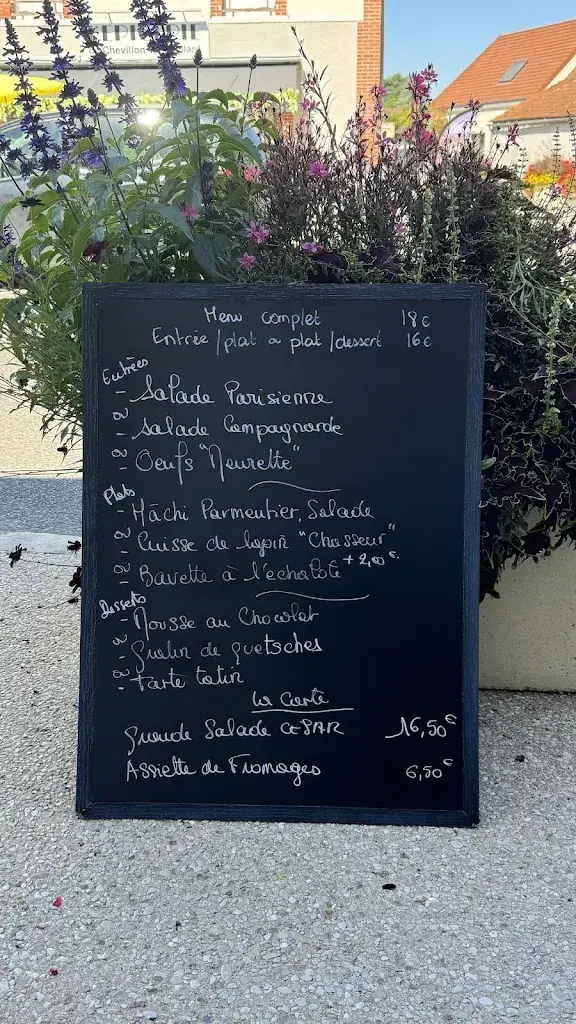 Chevillon
Menu complet 18€
Entrée/plat ou plat/dessert 16€
Entrées
- Salade Parisienne
ou
- Salade Campagnarde
ou
- Oeufs "Meurette"
Plats
- Hâchi Parmentier, Salade
ou
- Cuisse de lapin "Chasseur"
ou
- Bavette à l'echalote +2,00€
desserts
- Mousse au Chocolat
ou
- Gratin de quetsches
ou
- Tarte tatin
La Carte
Grande Salade CESAR 16,50€
Assiette de Fromages 6,50€